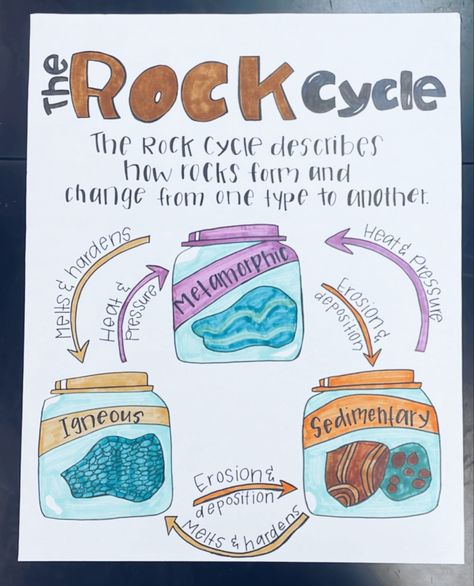 The Rock Cycle
The Rock Cycle describes
how rocks form and
change from one type to another.
Melts & hardens
Heat &
Pressure
Metamorphic
Heat & Pressure
Erosion &
deposition
Igneous
Sedimentary
Erosion &
deposition
Melts & hardens